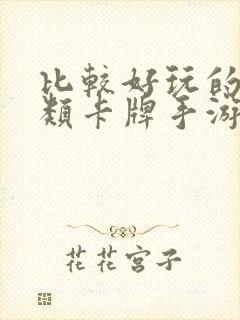 比較好玩的
類卡牌手游
花花宮子